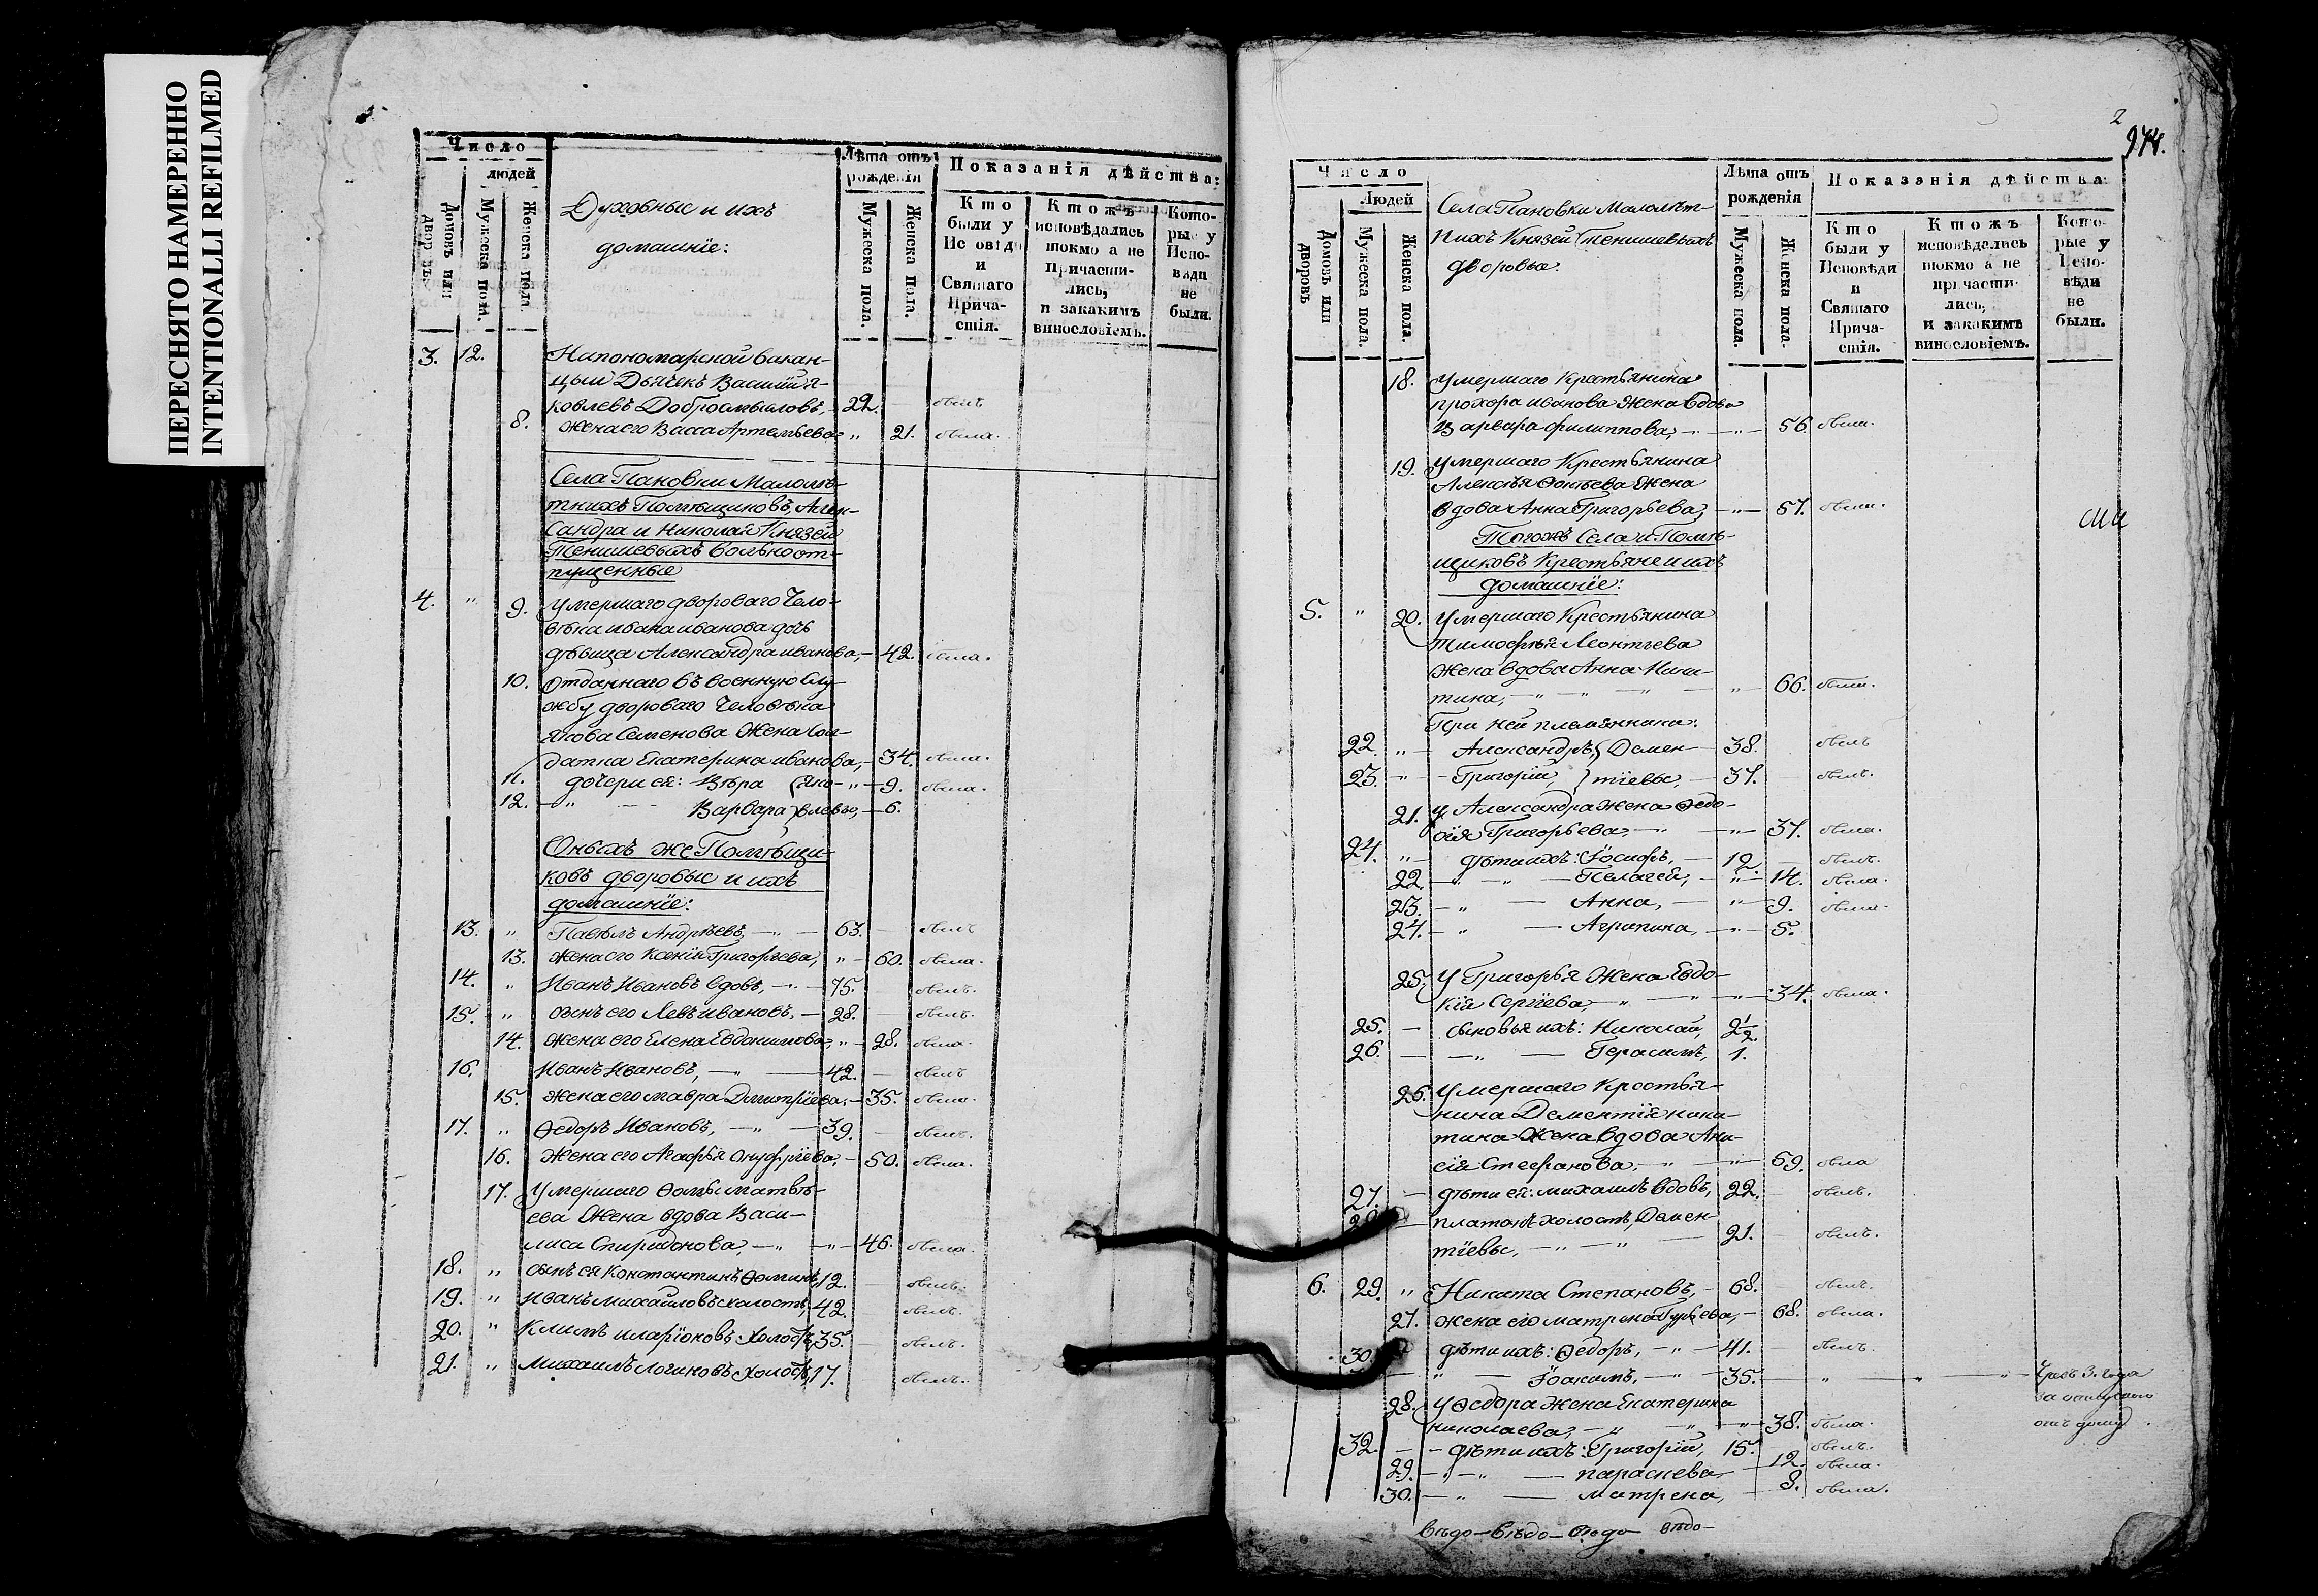 ПЕРЕСНЯТО НАМЕРЕННО
INTENTIONALLI REFILMED
Число
людей
Домовъ или дворовъ.
Мужеска пола.
Женска пола.
Духовные и ихъ
домашніе:
Лѣта отъ
рожденія
Мужеска пола.
Женска пола.
Показанія дѣйства:
Кто
были у
Исповѣди
и
Святаго
Прича-
стія.
Ктожъ
исповѣдались
токмо а не
причасти-
лись,
и закакимъ
винословіемъ.
Кото-
рые у
Испо-
вѣди
не
были.
3. 12. На пономарской вакан-
цыи Дьячекъ Василій я-
ковлевъ Добросмысловъ, 22. — былъ
8. жена его Васса Артемьева „ 21. была.
Села Пановки Малолѣ-
тнихъ Помѣщиковъ, Алек-
сандра и Николай Князей
Тенишевыхъ вольноот-
пущенные
4. „ 9. Умершаго двороваго Чело-
вѣка ивана иванова дочь
дѣвица Александра иванова, — 42. была.
10. Отданнаго въ военную слу-
жбу двороваго Человѣка
якова Семенова жена сол-
датка Екатерина иванова, — 34. была.
11. дочери ея: Вѣра } яко- „ — 9. была.
12. — „ — Варвара } влевы, — 6.
Оныхъ же Помѣщи-
ковъ дворовые и ихъ
домашніе:
13. „ Павелъ Андрѣевъ, — „ — 63. — былъ
13. жена его Ксенія Григорьева, „ — 60. была.
14. „ Иванъ Ивановъ вдовъ, — „ — 75. былъ.
15. „ сынъ его Левъ ивановъ, — 28. — былъ.
14. жена его Елена Евдокимова, „ — 28. была.
16. Иванъ Ивановъ, — „ — 42. — былъ
15. жена его мавра Дмитріева, — 35. была.
17. „ Ѳедоръ Ивановъ, — „ — 39. — былъ.
16. жена его Агафья Онуфріева, — 50. была.
17. Умершаго Ѳомы матвѣ-
ева жена вдова Васи-
лиса Спиридонова, — „ — „ — 46. была.
18. „ сынъ ея Константинъ Ѳоминъ, 12. — былъ.
19. „ иванъ михайловъ холостъ, 42. — былъ.
20. „ Климъ иларіоновъ холостъ, 35. — былъ.
21. „ михаилъ логиновъ холостъ, 17. былъ.
2
974.
Число
Людей
Домовъ или дворовъ
Мужеска пола.
Женска пола.
Села Пановки Малолѣт-
нихъ Князей Тенишевыхъ
дворовые.
Лѣта отъ
рожденія
Мужеска пола.
Женска пола.
Показанія дѣйства:
Кто
были у
Исповѣди
и
Святаго
Прича-
стія.
Ктожъ
исповѣдались
токмо а не
причасти-
лись,
и закакимъ
винословіемъ.
Кото-
рые у
Испо-
вѣди
не
были.
18. Умершаго Крестьянина
прохора иванова жена вдова
Варвара филиппова, — „ — 56. была.
19. Умершаго Крестьянина
Алексѣя жена
вдова Анна Григорьева, — „ — 57. была.
Тогожъ Села и Помѣ-
щиковъ Крестьяне и ихъ
домашніе:
5. „ 20. Умершаго Крестьянина
тимофѣя Леонтьева
жена вдова Анна Ники-
тина, — „ — „ — „ — „ 66. была.
При ней племянники:
22. „ — Александръ, } Демен- — 38. былъ
23. — „ — Григорій, } тіевы, — 37. — былъ.
21. У Александра жена Ѳедо-
сія Григорьева, — „ — „ — 37. была.
24. „ — дѣти ихъ: Іосифъ, — 12. — былъ.
22. — „ — „ — Пелагея, — „ — 14. была.
23. — „ — Анна, — „ — 9. была.
24. — „ — Агрипина, — „ — 5.
25. У Григорья жена Евдо-
кія Сергіева, — „ — „ — „ — 34. была.
25. — сыновья ихъ: Николай, 2 1/2.
26. — — „ — Герасимъ, 1.
26. Умершаго Крестья-
нина Дементія ники-
тина жена вдова Ани-
сія Стефанова, — „ — „ — 69. была
27. — дѣти ея: михаилъ вдовъ, 22. — былъ.
28. — платонъ холостъ, Демен-
тіевы, — „ — „ — 21. — былъ.
6. 29. „ Никита Степановъ, — 68. — былъ.
27. жена его матрена Гурьева, — 68. была.
30. дѣти ихъ: Ѳедоръ, — „ — 41. былъ.
— „ — Іоакимъ, — „ — 35. — „ — „ — „ — Чрезъ 3. года
отъ дому.
28. У Ѳедора жена Екатерина
николаева, — „ — „ — „ — 38. была.
32. — — дѣти ихъ: Григорій, 15. — былъ.
29. — „ — „ — параскева, — 12. была.
30. — „ — матрена, — 8. была.
вѣдо— вѣдо— вѣдо— вѣдо—